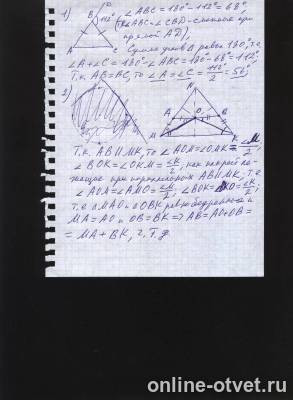 1) B D 112° ∠ABC=180°-112°=68°,
(∠ABC и ∠CBD - смежные при
прямой AD),
A C Сумма углов Δ равна 180°, т.е.
∠A+∠C=180°-∠ABC=180°-68°=112°;
Т.к. AB=BC, то ∠A=∠C=112°/2=56°;
2) N
A O B
M K
Т.к. AB∥MK, то ∠AOM=∠OMK=∠M/2,
∠BOK=∠OKM=∠K/2, как накрест ле-
жащие при параллельных AB∥MK, т.е.
∠AOM=∠AMO=∠M/2, ∠BOK= KO=∠K/2;
т.е. ΔMAO и ΔOBK равнобедренные и
MA=AO и OB=BK ⇒ AB=AO+OB=
=MA+BK, ч.т.д.
online-otvet.ru